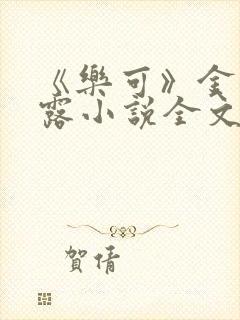 《樂可》金
露小說全文
賀倩